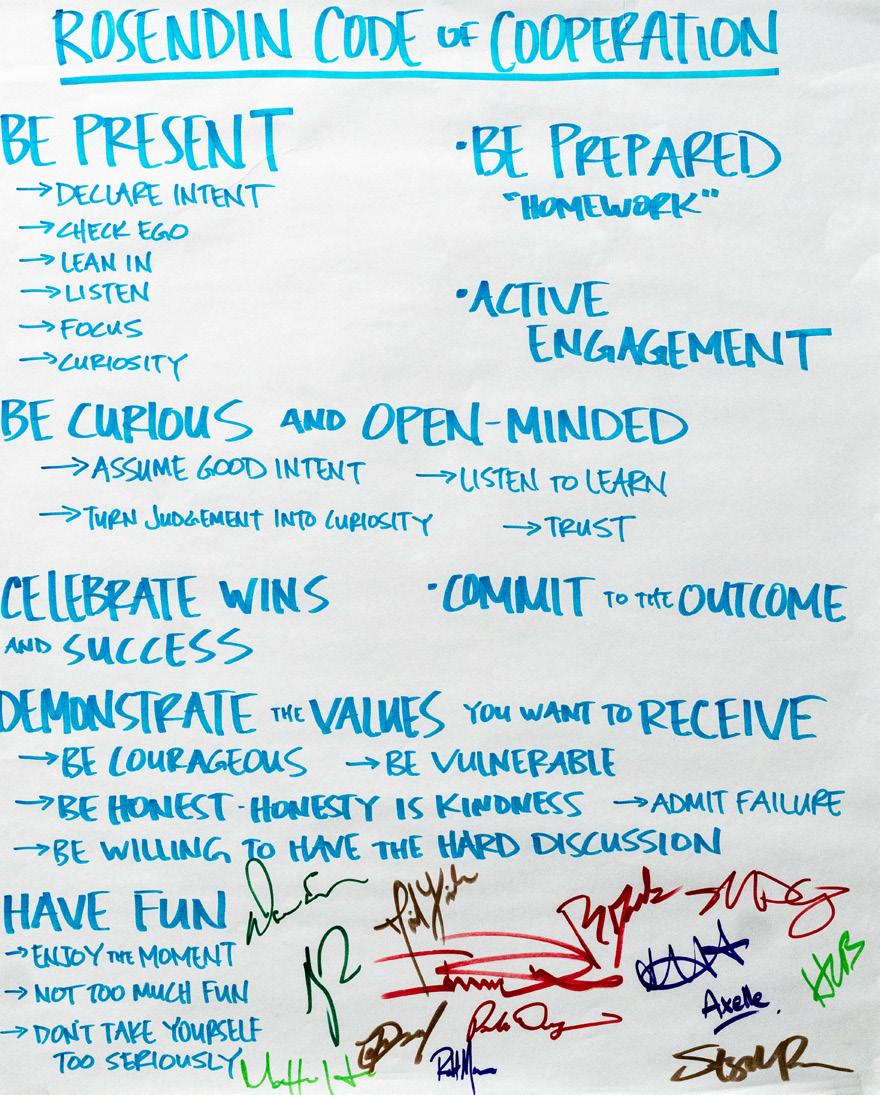 ROSENDIN CODE OF COOPERATION
BE PRESENT
→DECLARE INTENT
→CHECK EGO
→LEAN IN
→LISTEN
→FOCUS
→CURIOSITY
·BE PREPARED
"HOMEWORK"
·ACTIVE
ENGAGEMENT
BE CURIOUS AND OPEN-MINDED
→ASSUME GOOD INTENT →LISTEN TO LEARN
→TURN JUDGEMENT INTO CURIOSITY →TRUST
CELEBRATE WINS
AND SUCCESS
·COMMIT TO THE OUTCOME
DEMONSTRATE THE VALUES YOU WANT TO RECEIVE
→BE COURAGEOUS →BE VULNERABLE
→BE HONEST-HONESTY IS KINDNESS →ADMIT FAILURE
→BE WILLING TO HAVE THE HARD DISCUSSION
HAVE FUN
→ENJOY THE MOMENT
→NOT TOO MUCH FUN
→DON'T TAKE YOURSELF
TOO SERIOUSLY
Axelle.